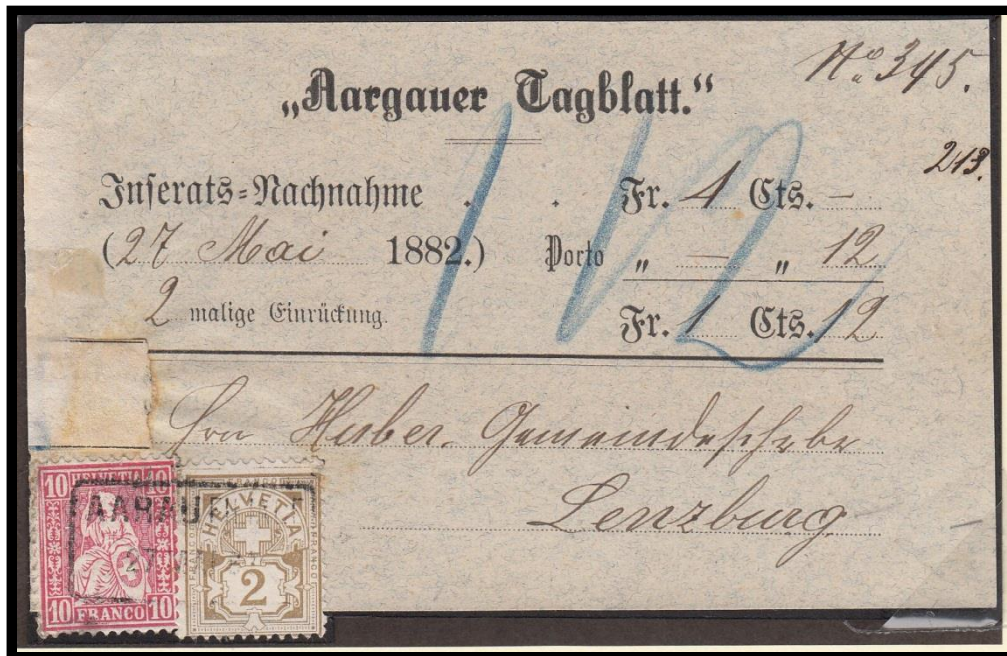 No 345.
„Aargauer Tagblatt.“
213.
Inserats-Nachnahme . . Fr. 1 Cts. —
(27 Mai 1882.) Porto „ — „ 12
2 malige Einrückung. Fr. 1 Cts. 12
1 12
Hrn Huber. Gemeindeschrbr
Lenzburg
10 HELVETIA 10
AARAU
10 FRANCO 10
HELVETIA
2